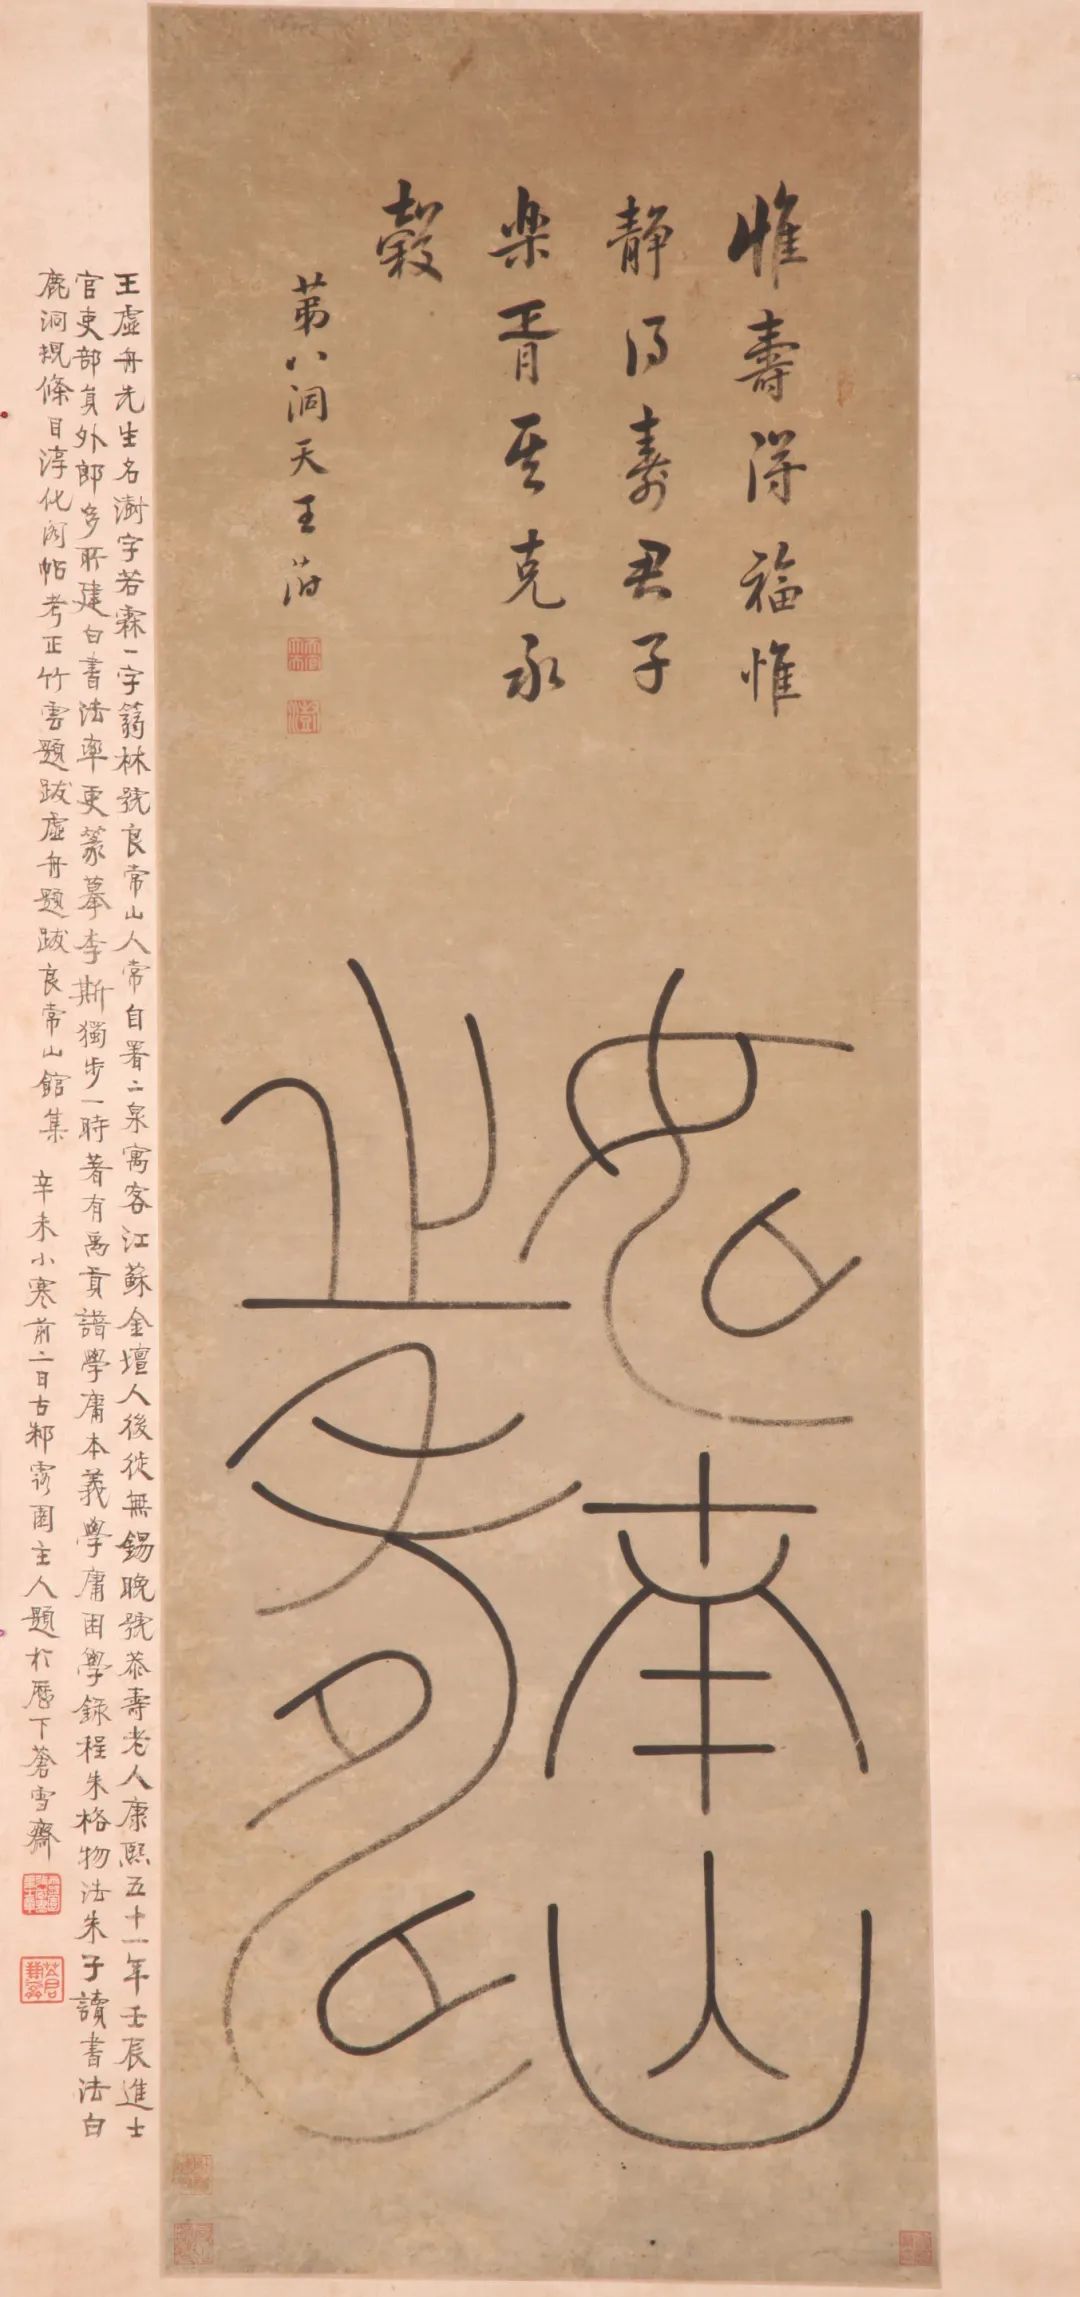 惟壽得福惟
静得壽君子
樂胥其克永
穀
第八洞天王澍
如南山之壽
王虛舟先生名澍字若霖一字篛林號良常山人常自署二泉寓客江蘇金壇人後徙無錫晚號恭壽老人康熙五十一年壬辰進士
官吏部員外郎多所建白書法率更篆摹李斯獨步一時著有禹貢譜學庸本義學庸困學錄程朱格物法朱子讀書法白
鹿洞規條目淳化閣帖考正竹雲題跋虛舟題跋良常山館集 辛未小寒前二日古邾露園主人題於歷下蒼雪齋